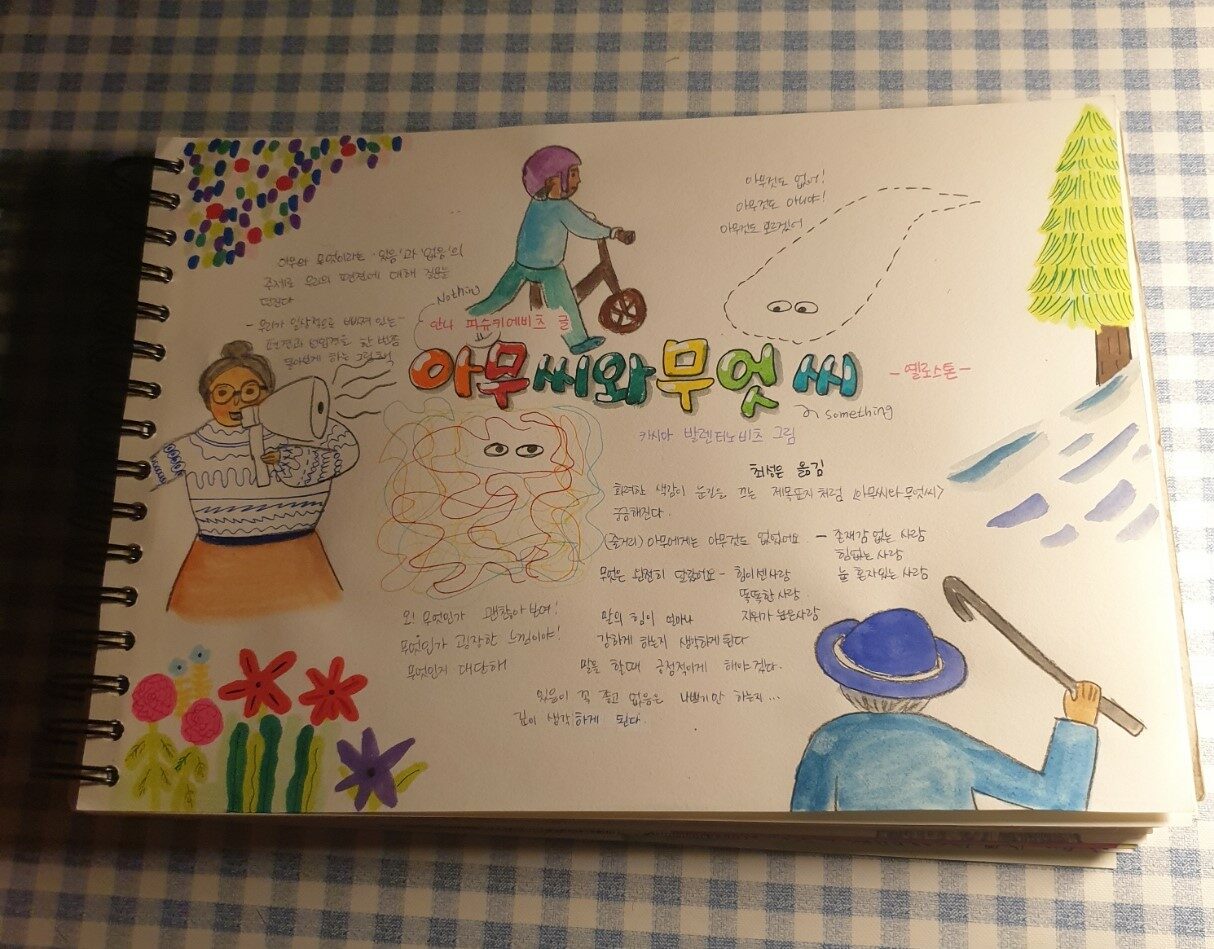 아무와 무엇이라는 '있음'과 '없음'의
주제로 우리의 편견에 대해 질문을
던진다
- 우리가 일상적으로 빠져 있는
편견과 한 번쯤
돌아보게 하는 그림책
Nothing
안나 파슈키에비츠 글
아무씨와 무엇씨
- 옐로스톤 -
something
카시아 발렌티노비츠 그림
최성은 옮김
아무것도 없어!
아무것도 아니야!
아무것도 모르겠어
화려한 색감이 눈길을 끄는 제목표지처럼 <아무씨와 무엇씨>
궁금해진다.
(줄거리) 아무에게는 아무것도 없었어요. - 존재감 없는 사람
힘없는 사람
늘 혼자있는 사람
무엇은 완전히 달랐어요 - 힘이 센 사람
똑똑한 사람
지위가 높은사람
오! 무엇인가 괜찮아 보여!
무엇인가 굉장한 느낌이야!
무엇인지 대단해
말의 힘이 얼마나
강하게 하는지 생각하게 된다
말을 할 때 긍정적이게 해야 겠다.
있음이 꼭 좋고 없음은 나쁘기만 하는지...
깊이 생각하게 된다.